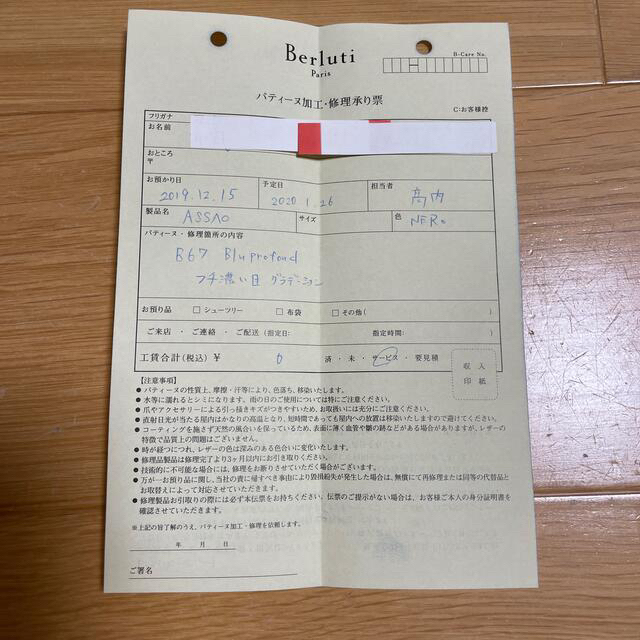 Berluti
Paris
B-Care No.
パティーヌ加工・修理承り票
C:お客様控
フリガナ
お名前
おところ
〒
お預かり日
2019.12.15
予定日
2020 1.26
担当者
高内
製品名
ASSAO
サイズ
色
NERO
パティーヌ・修理箇所の内容
B67 Blu profond
フチ濃い目 グラデーション
お預り品 □ シューツリー □ 布袋 □ その他( )
ご来店 ・ ご連絡 ・ ご配送(指定日: 指定時間: )
工賃合計(税込)¥ 0 済 ・ 未 ・ サービス ・ 要見積
収入
印紙
【注意事項】
● パティーヌの性質上、摩擦・汗等により、色落ち、移染いたします。
● 水等に濡れるとシミになります。雨の日のご使用については特にご注意ください。
● 爪やアクセサリーによる引っ掻きキズがつきやすいため、お取扱いには充分にご注意ください。
● 直射日光が当たる屋内はかなりの高温となり、短時間であっても屋内への放置は移染いたしますので避けてください。
● コーティングを施さず天然の風合いを保っているため、表面に薄く血管や皺の跡などがある場合がありますが、レザーの
特徴で品質上の問題はございません。
● 時が経つにつれ、レザーの色は深みのある色合いに変化いたします。
● 修理品製品は修理完了より3ヶ月以内にお引き取りください。
● 技術的に不可能な場合には、修理をお断りさせていただく場合がございます。
● 万が一お預り品に関し、当社の責に帰すべき事由により毀損紛失が発生した場合は、無償にて再修理または同等の代替品と
お取替えによって対応させていただきます。
● 修理製品お引取りの際には必ず本伝票をお持ちください。伝票のご提示がない場合は、お客様ご本人の身分証明書を
確認させていただきます。
※上記の旨了解のうえ、パティーヌ加工・修理を依頼します。
年 月 日
ご署名